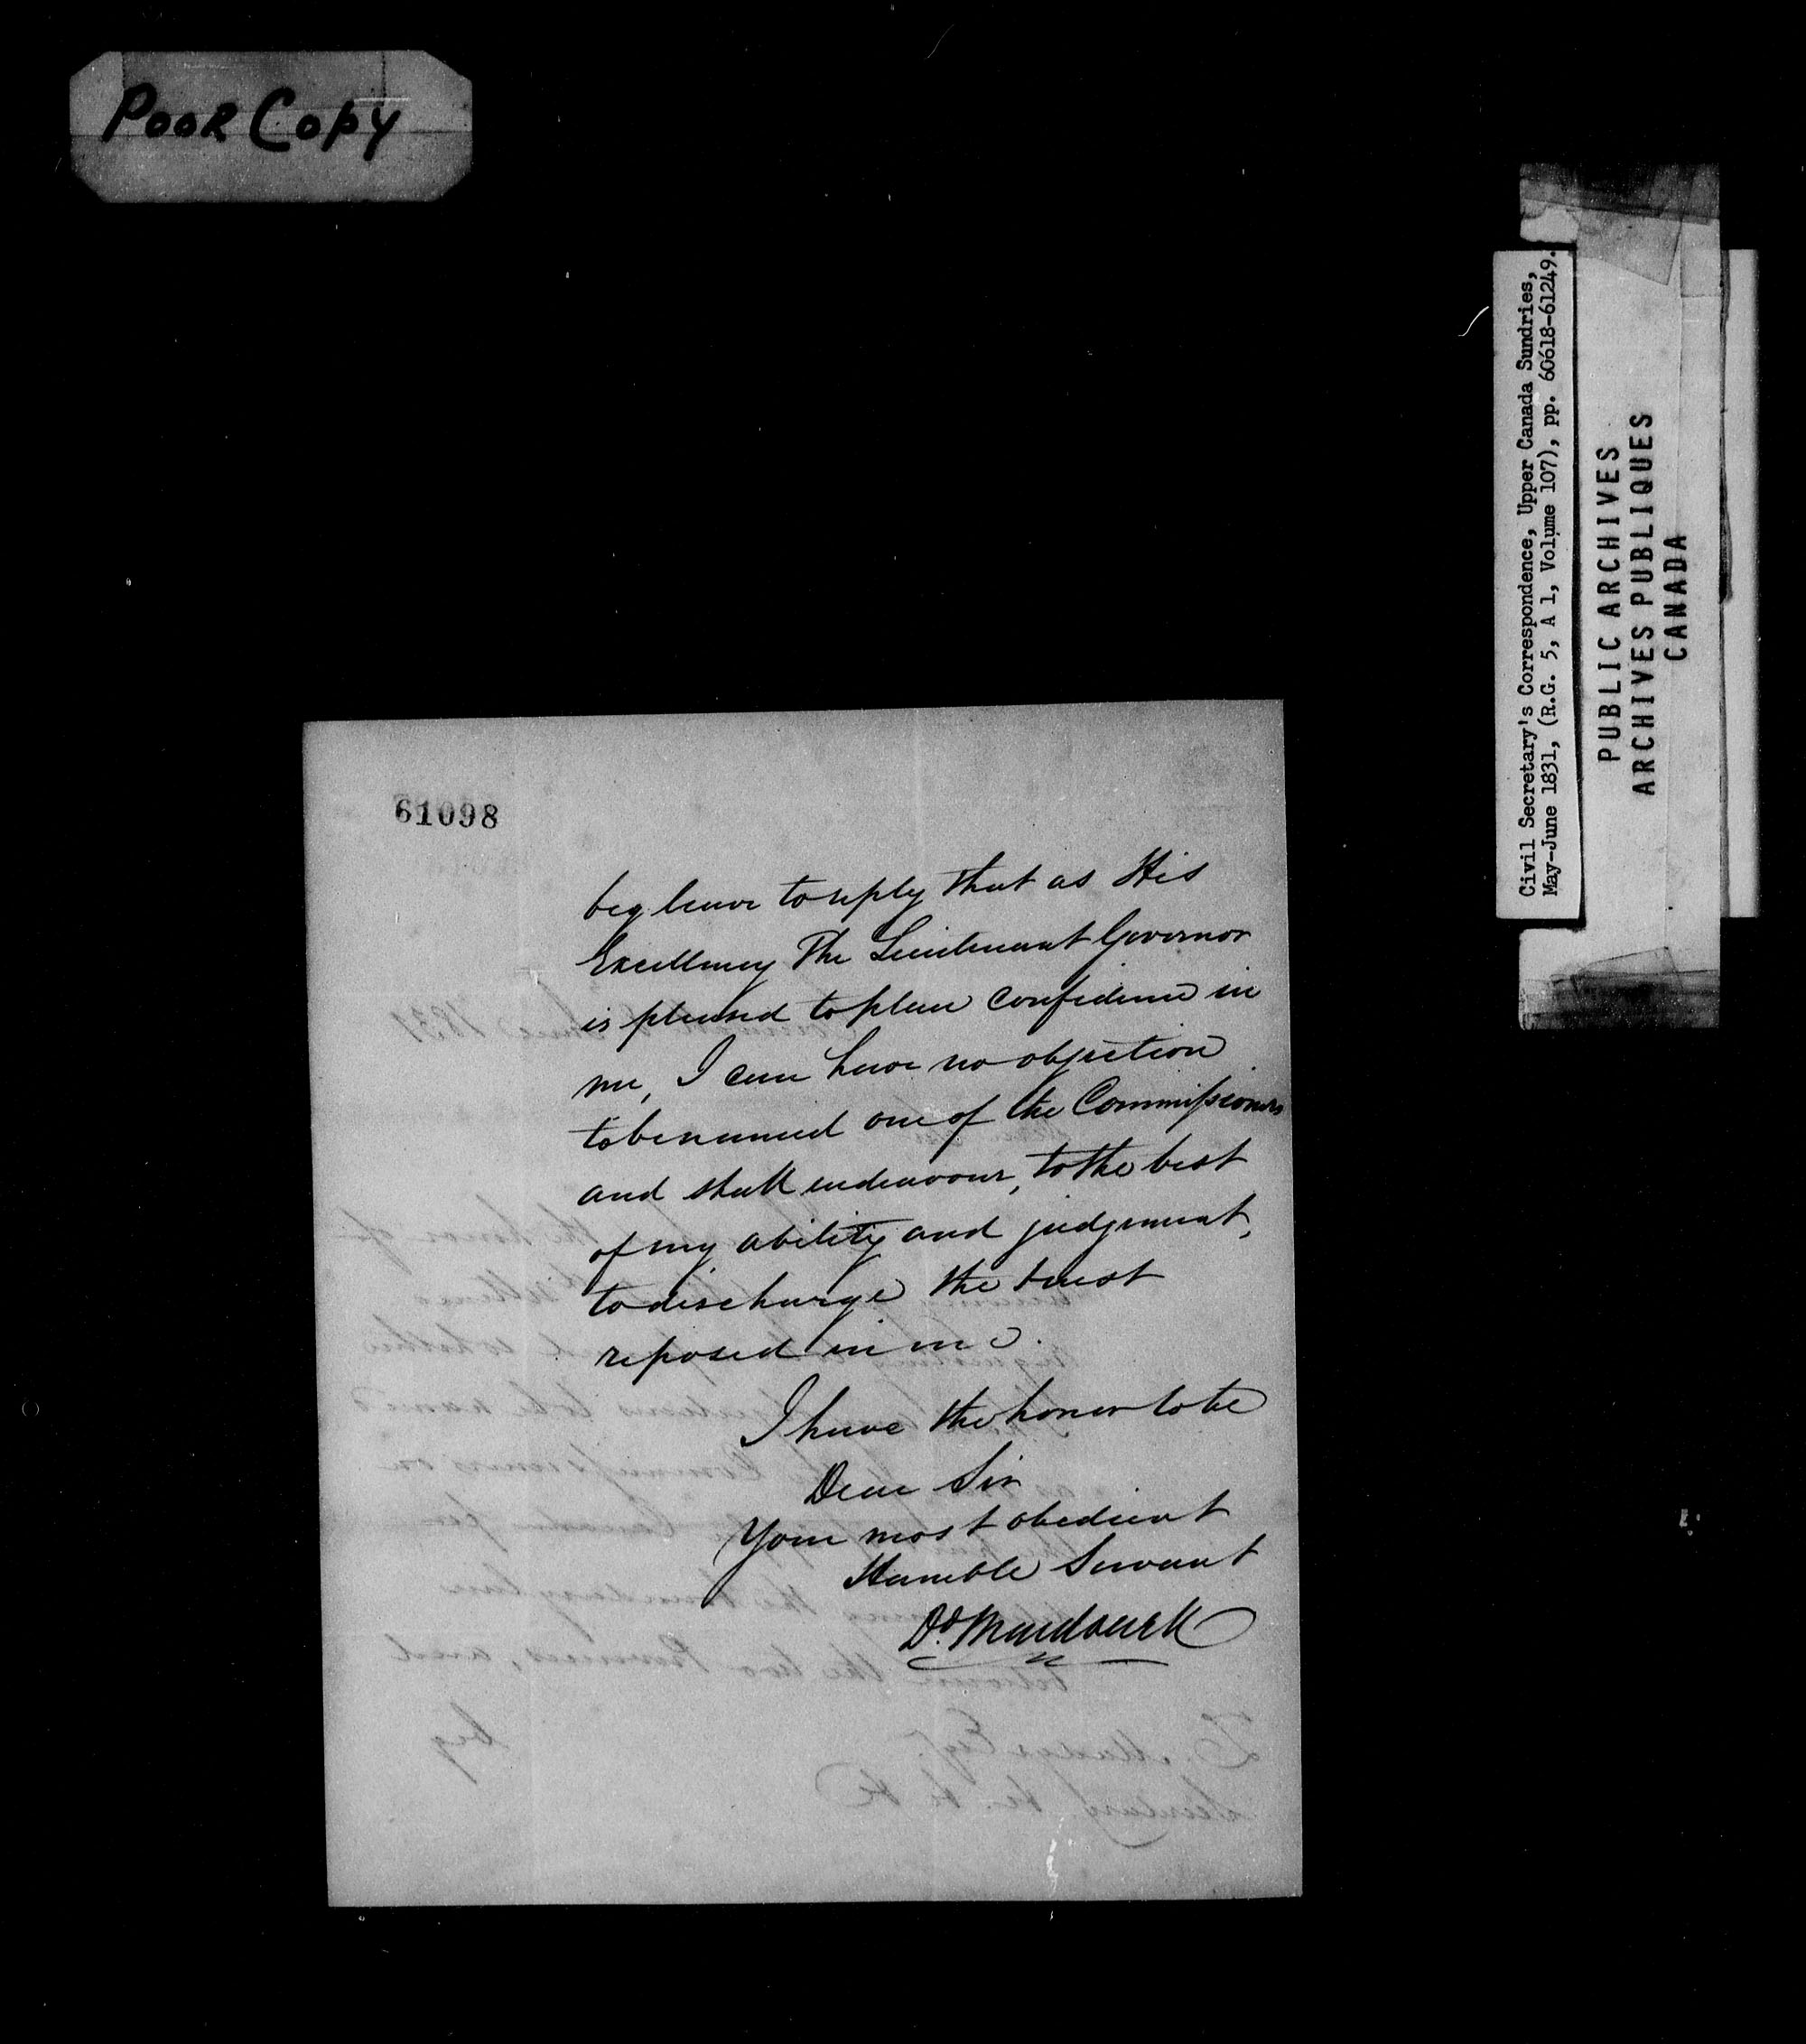 Poor Copy
Civil Secretary's Correspondence, Upper Canada Sundries,
May-June 1831, (R.G. 5, A 1, Volume 107), pp. 60618-61249.
PUBLIC ARCHIVES
ARCHIVES PUBLIQUES
CANADA
61098
beg leave to reply that as His
Excellency The Lieutenant Governor
is pleased to place confidence in
me, I can have no objection
to be named one of the Commissioners
and shall endeavour, to the best
of my ability and judgement,
to discharge the trust
reposed in me.
I have the honor to be
Dear Sir
Your most obedient
Humble Servant